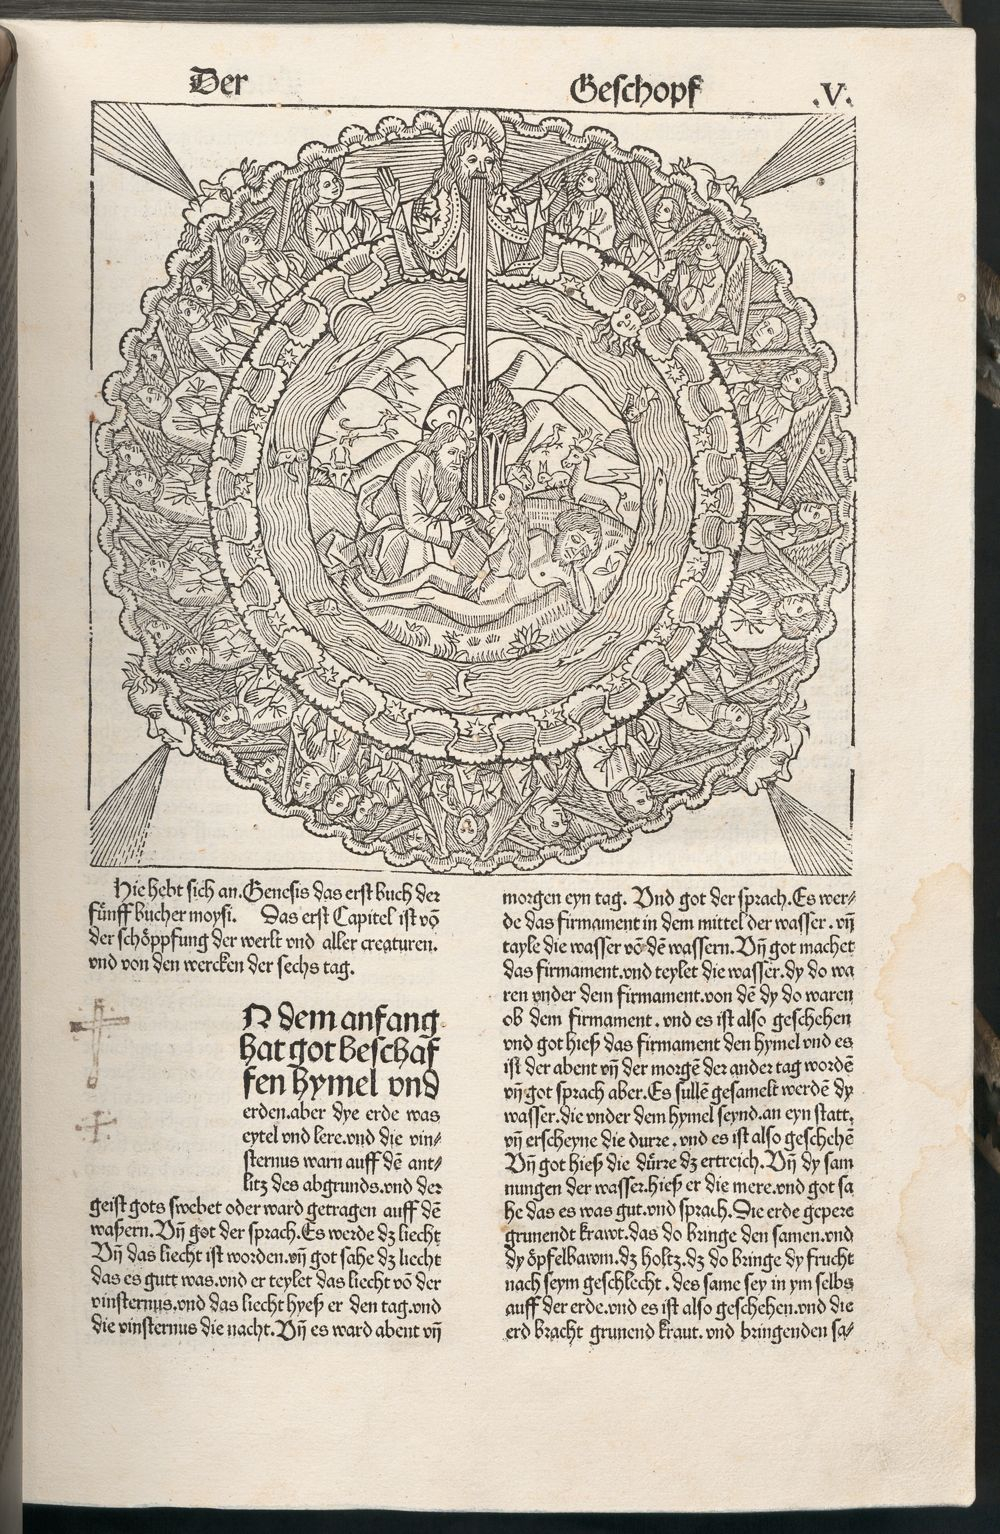 Der Geschopf .V.
Hie hebt sich an. Genesis das erst buch der
fünff bucher moysi. Das erst Capitel ist võ
der schöppfung der werlt vnd aller creaturen.
vnd von den wercken der sechs tag.
N dem anfang
hat got beschaf
fen hymel vnd
erden. aber dye erde was
eytel vnd lere. vnd die vin⸗
sternus warn auff dẽ ant⸗
litz des abgrunds. vnd der
geist gots swebet oder ward getragen auff dẽ
waßern. Vñ got der sprach. Es werde dz liecht
Vñ das liecht ist worden. vñ got sahe dz liecht
das es gutt was. vnd er teylet das liecht võ der
vinsternus. vnd das liecht hyeß er den tag. vnd
die vinsternus die nacht. Vñ es ward abent vñ
morgen eyn tag. Vnd got der sprach. Es wer⸗
de das firmament in dem mittel der wasser. vñ
tayle die wasser võ dẽ wassern. Vñ got machet
das firmament. vnd teylet die wasser. dy do wa
ren vnder dem firmament. von dẽ dy do waren
ob dem firmament. vnd es ist also geschehen
vnd got hieß das firmament den hymel vnd es
ist der abent vñ der morgẽ der ander tag wordẽ
vñ got sprach aber. Es sullẽ gesamelt werdẽ dy
wasser. die vnder dem hymel seynd. an eyn statt.
vñ erscheyne die durre. vnd es ist also geschehẽ
Vñ got hieß die dürre dz ertreich. Vñ dy sam
nungen der wasser. hieß er die mere. vnd got sa
he das es was gut. vnd sprach. Die erde gepere
grunendt krawt. das do bringe den samen. vnd
dy öpfelbawm. dz holtz. dz do bringe dy frucht
nach seym geschlecht. des same sey in ym selbs
auff der erde. vnd es ist also geschehen. vnd die
erd bracht grunend kraut. vnd bringenden sa⸗